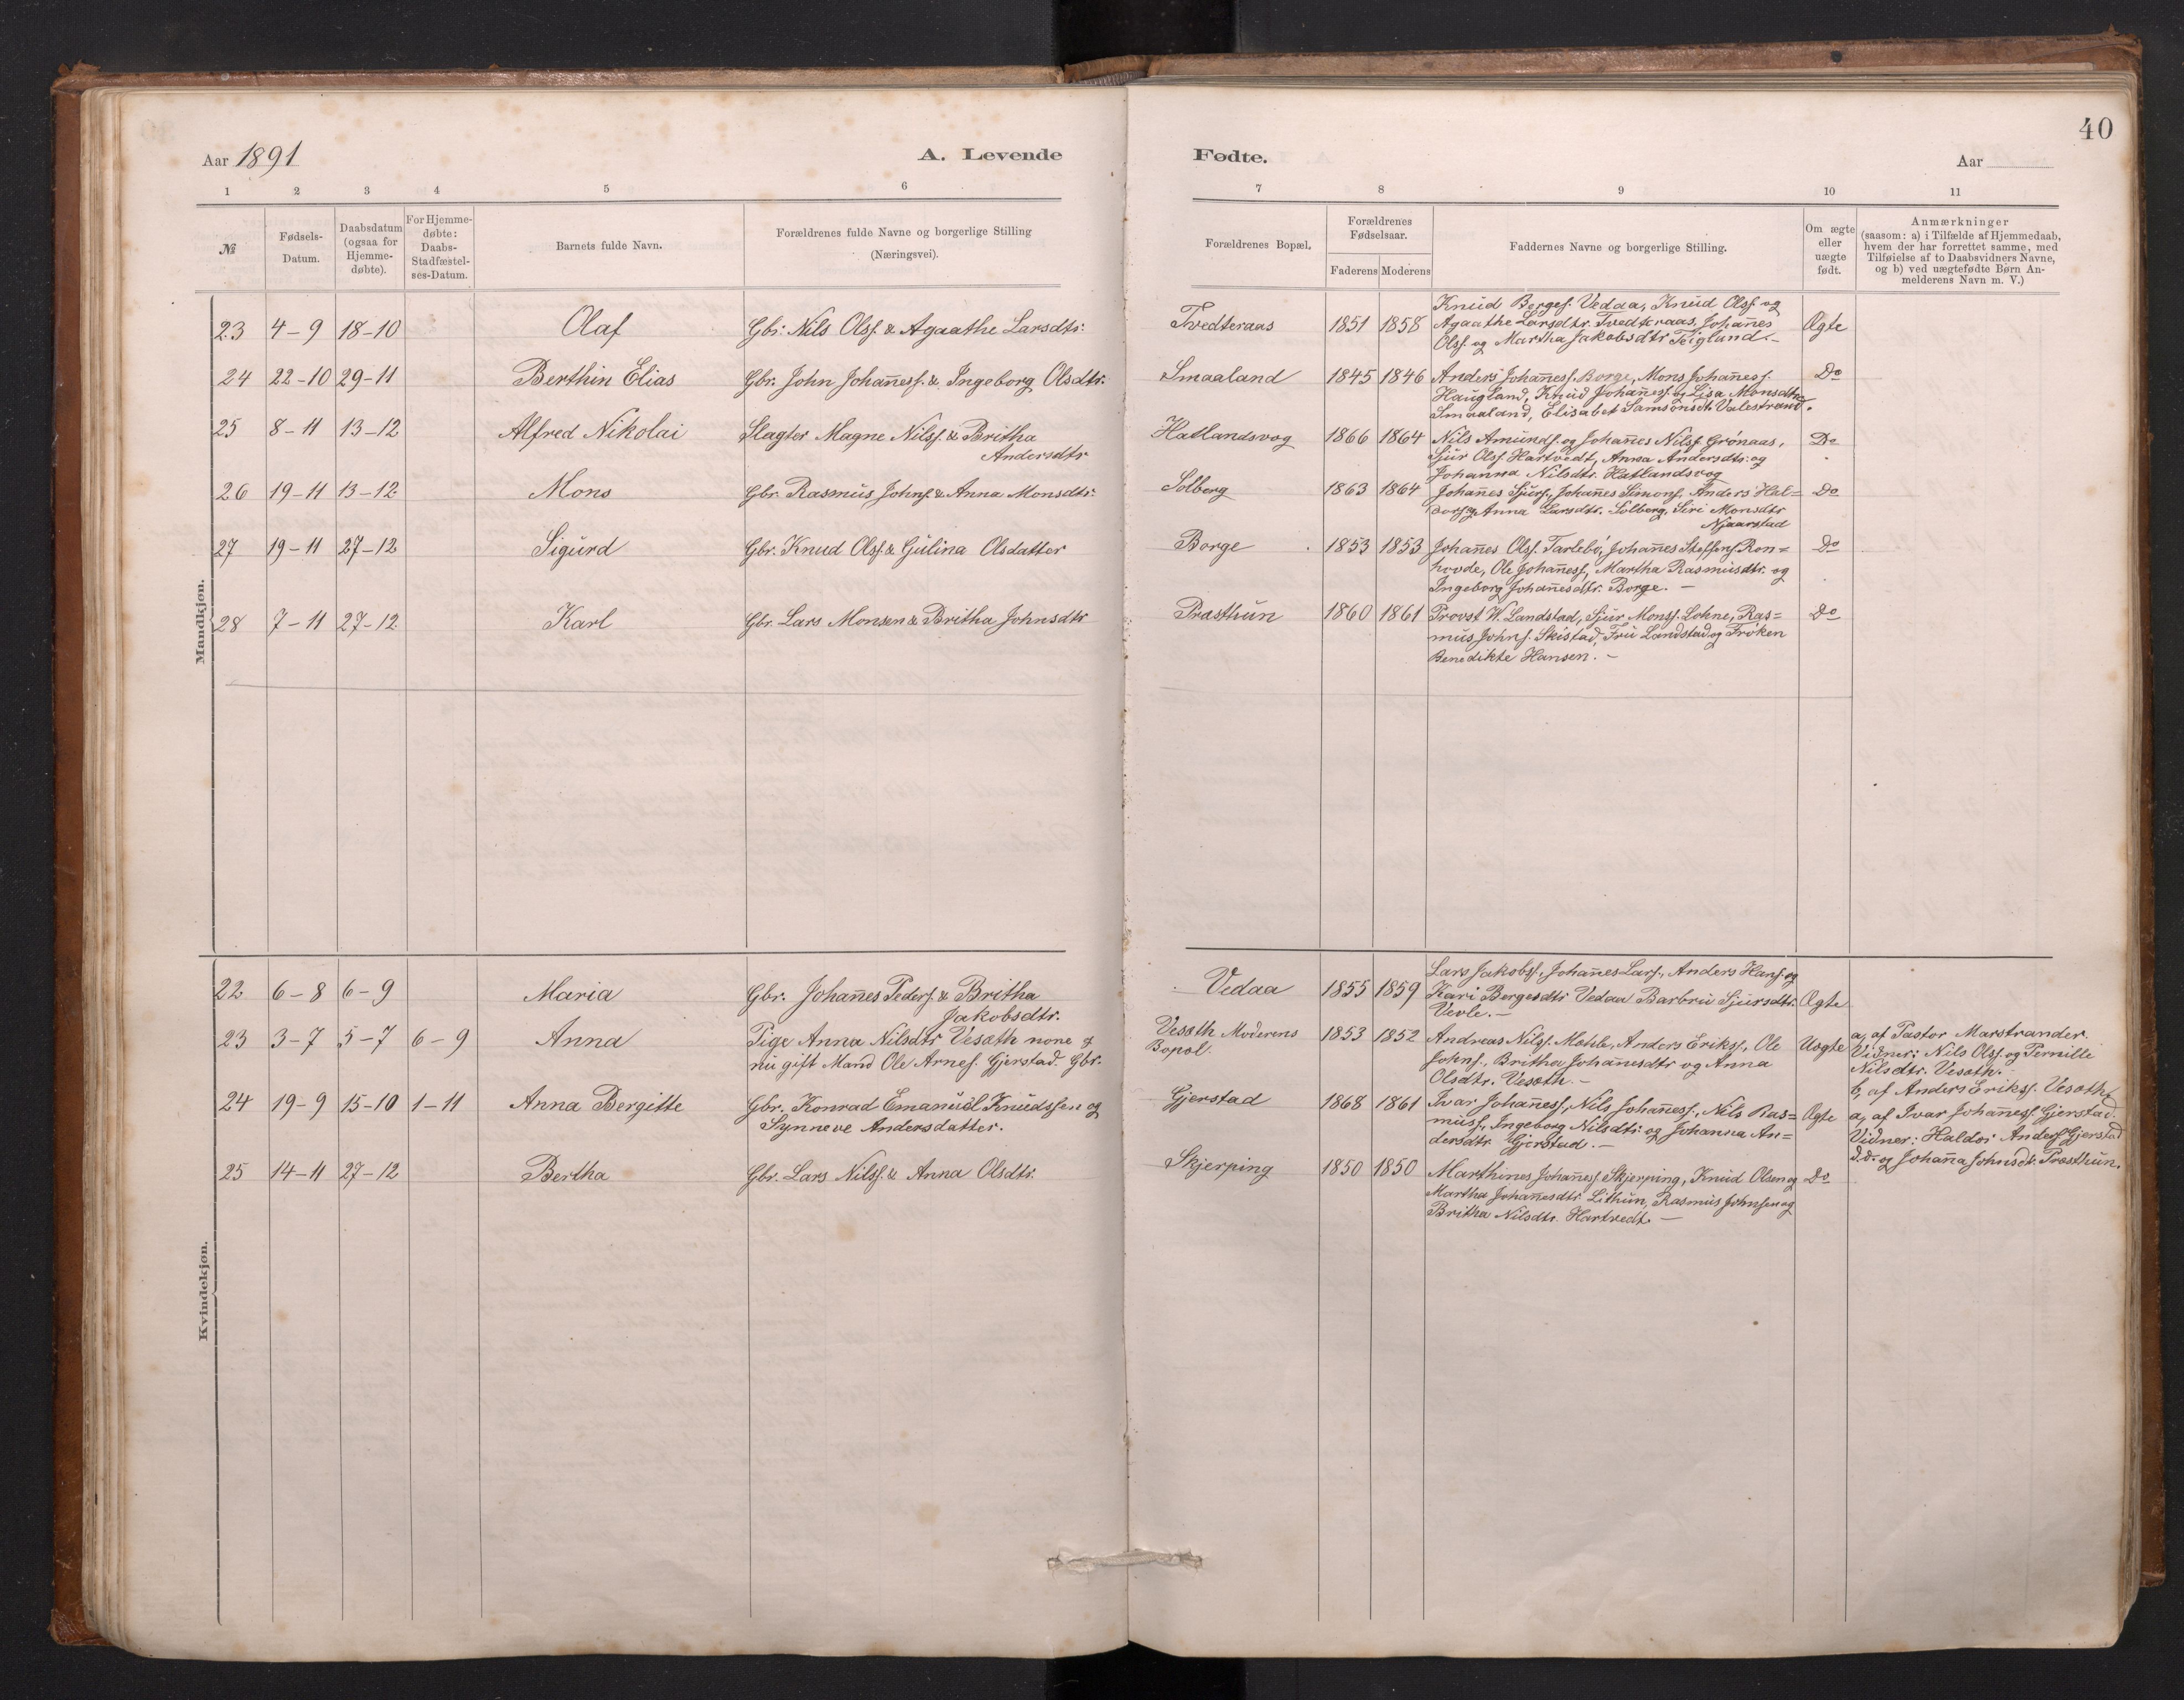 40
Aar 1891
A. Levende
Fødte.
Aar
1 2 3 4 5 6 7 8 9 10 11
№
Fødsels-
Datum.
Daabsdatum
(ogsaa for
Hjemme-
døbte).
For Hjemme-
døbte:
Daabs-
Stadfæstel-
ses-Datum.
Barnets fulde Navn.
Forældrenes fulde Navne og borgerlige Stilling
(Næringsvei).
Forældrenes Bopæl.
Forældrenes
Fødselsaar.
Faderens Moderens
Faddernes Navne og borgerlige Stilling.
Om ægte
eller
uægte
født.
Anmærkninger
(saasom: a) i Tilfælde af Hjemmedaab,
hvem der har forrettet samme, med
Tilføielse af to Daabsvidners Navne,
og b) ved uægtefødte Børn An-
melderens Navn m. V.)
Mandkjøn.
23 4-9 18-10 Olaf Gbr: Nils Olss. & Agaathe Larsdtr: Tvedteraas 1851 1858 Knud Berges. Vedaa, Knud Olss. og
Agaathe Larsdtr. Tvedteraas, Johañes Ægte
Olss. og Martha Jakobsdtr Teigland.-
24 22-10 29-11 Berthin Elias Gbr. John Johañess. & Ingeborg Olsdtr. Smaaland 1845 1846 Anders Johañess. Borge, Mons Johañess. Do
Haugland, Knud Johañess. og Lisa Monsdtr
Smaaland, Elisabet Samsonsdt. Valestrand.
25 8-11 13-12 Alfred Nikolai Slagter Magne Nilss. & Britha
Andersdtr
Hatlandsvog 1866 1864 Nils Amunds. og Johañes Nilss. Grönaas, Do
Sjur Olss. Hartvedt, Anna Andersdtr: og
Johanna Nilsdtr. Hatlandsvog
26 19-11 13-12 Mons Gbr. Rasmus Johns. & Anna Monsdtr: Solberg 1863 1864 Johañes Sjurs., Johañes Simons, Anders Hal= Do
vors. og Anna Larsdtr. Solberg, Siri Monsdtr
Njaarstad
27 19-11 27-12 Sigurd Gbr. Knud Olss. & Gulina Olsdatter Borge 1853 1853 Johañes Olss. Tarlebö, Johañes Steffens. Ron= Do
hovde, Ole Johañess., Martha Rasmusdtr. og
Ingeborg Johañesdtr. Borge. -
28 7-11 27-12 Karl Gbr. Lars Monsen & Britha Johnsdtr Præsthun 1860 1861 Provst W. Landstad, Sjur Monss. Lohne, Ras= Do
mus Johns. Skistad, Fru Landstad og Fröken
Benedikte Hansen. -
Kvindekjøn.
22 6-8 6-9 Maria Gbr. Johañes Peders. & Britha
Jakobsdtr.
Vedaa 1855 1859 Lars Jakobss., Johañes Lars., Anders Hans. og
Kari Bergesdtr Vedaa Barbru Sjursdtr. Ægte
Vevle.-
23 3-7 5-7 6-9 Anna Pige Anna Nilsdtr Vesæth none &
nu gift Mand Ole Arnes. Gjerstad. Gbr.
Vesæth Moderens
Bopæl.
1853 1852 Andreas Nilss. Mæhle, Anders Erikss., Ole Uægte
Johns., Britha Johañesdtr og Anna
Olsdtr. Vesæth.-
a, af Pastor Marstrander.
Vidner: Nils Olss. og Pernille
Nilsdtr. Vesæth.
b, af Anders Erikss. Vesæth
24 19-9 15-10 1-11 Anna Bergitte Gbr. Konrad Emanuel Knudssen og
Synneve Andersdatter.
Gjerstad 1868 1861 Ivar Johañess., Nils Johañess., Nils Ras= Ægte
muss., Ingeborg Nilsdtr: og Johanna An=
dersdtr. Gjerstad.-
a, af Ivar Johañess. Gjerstad.
Vidner: Haldor Anders. Gjerstad
og Johaña Johnsdt. Præsthun.
25 14-11 27-12 Bertha Gbr. Lars Nilss. & Anna Olsdtr. Skjerping 1850 1850 Marthines Johañess. Skjerping, Knud Olsen og Do
Martha Johañesdtr. Lithun, Rasmus Johnsen og
Britha Nilsdtr. Hartvedt.-